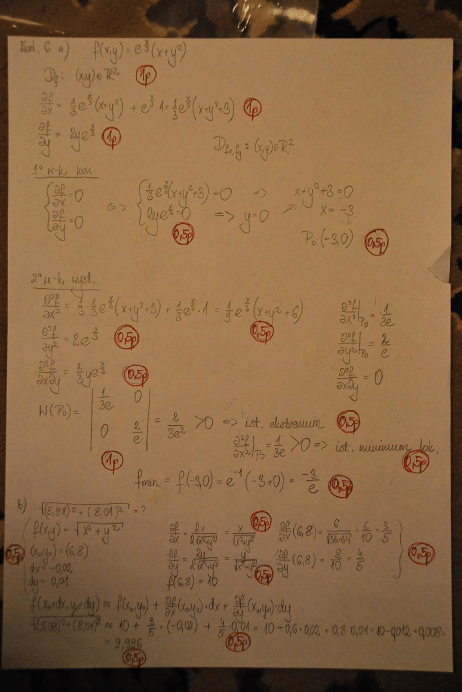 Zad. 6 a) f(x,y) = e^{x/3}(x+y²)
D_f: (x,y) ∈ ℝ² 1p
∂f/∂x = 1/3 e^{x/3}(x+y²) + e^{x/3}·1 = 1/3 e^{x/3}(x+y²+3) 1p
∂f/∂y = 2ye^{x/3} 1p D_{fx,fy}: (x,y) ∈ ℝ²
1° w-k kon.
{ ∂f/∂x = 0 ⇔ { 1/3 e^{x/3}(x+y²+3) = 0 ⇒ x+y²+3 = 0
{ ∂f/∂y = 0 { 2ye^{x/3} = 0 ⇒ y = 0 x = -3
0,5p P₀(-3,0) 0,5p
2° w-k wyst.
∂²f/∂x² = 1/3·1/3 e^{x/3}(x+y²+3) + 1/3 e^{x/3}·1 = 1/9 e^{x/3}(x+y²+6) ∂²f/∂x²|P₀ = 1/3e
∂²f/∂y² = 2e^{x/3} 0,5p 0,5p ∂²f/∂y²|P₀ = 2/e
∂²f/∂x∂y = 2/3 ye^{x/3} 0,5p ∂²f/∂x∂y = 0
W(P₀) = | 1/3e 0 | = 2/3e² > 0 ⇒ ist. ekstremum 0,5p
| 0 2/e | ∂²f/∂x²|P₀ = 1/3e > 0 ⇒ ist. minimum lok. 0,5p
1p
fmin. = f(-3,0) = e^{-1}(-3+0) = -3/e 0,5p
b) √((5,98)² + (8,01)²) = ?
f(x,y) = √(x²+y²) ∂f/∂x = 2x/2√(x²+y²) = x/√(x²+y²) 0,5p ∂f/∂x(6,8) = 6/√(36+64) = 6/10 = 3/5
0,5p (x₀,y₀) = (6,8) ∂f/∂y = 2y/2√(x²+y²) = y/√(x²+y²) 0,5p ∂f/∂y(6,8) = 8/10 = 4/5 0,5p
dx = -0,02
dy = 0,01 f(6,8) = 10
f(x₀+dx, y₀+dy) ≈ f(x₀,y₀) + ∂f/∂x(x₀,y₀)·dx + ∂f/∂y(x₀,y₀)·dy
√((5,98)²+(8,01)²) ≈ 10 + 3/5·(-0,02) + 4/5·0,01 = 10 - 0,6·0,02 + 0,8·0,01 = 10 - 0,012 + 0,008 =
= 9,996 0,5p
0,5p